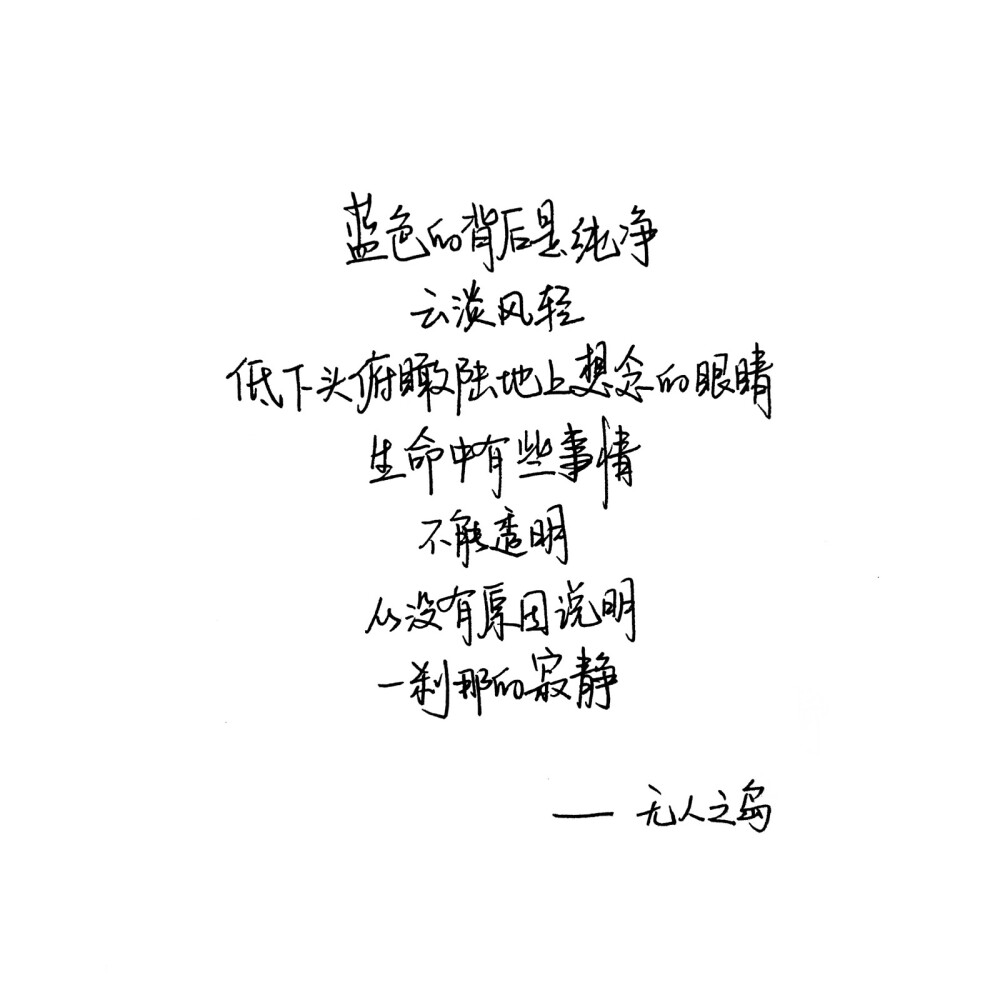 蓝色的背后是纯净
云淡风轻
低下头俯瞰陆地上想念的眼睛
生命中有些事情
不能透明
从没有原因说明
一刹那的寂静
—— 无人之岛